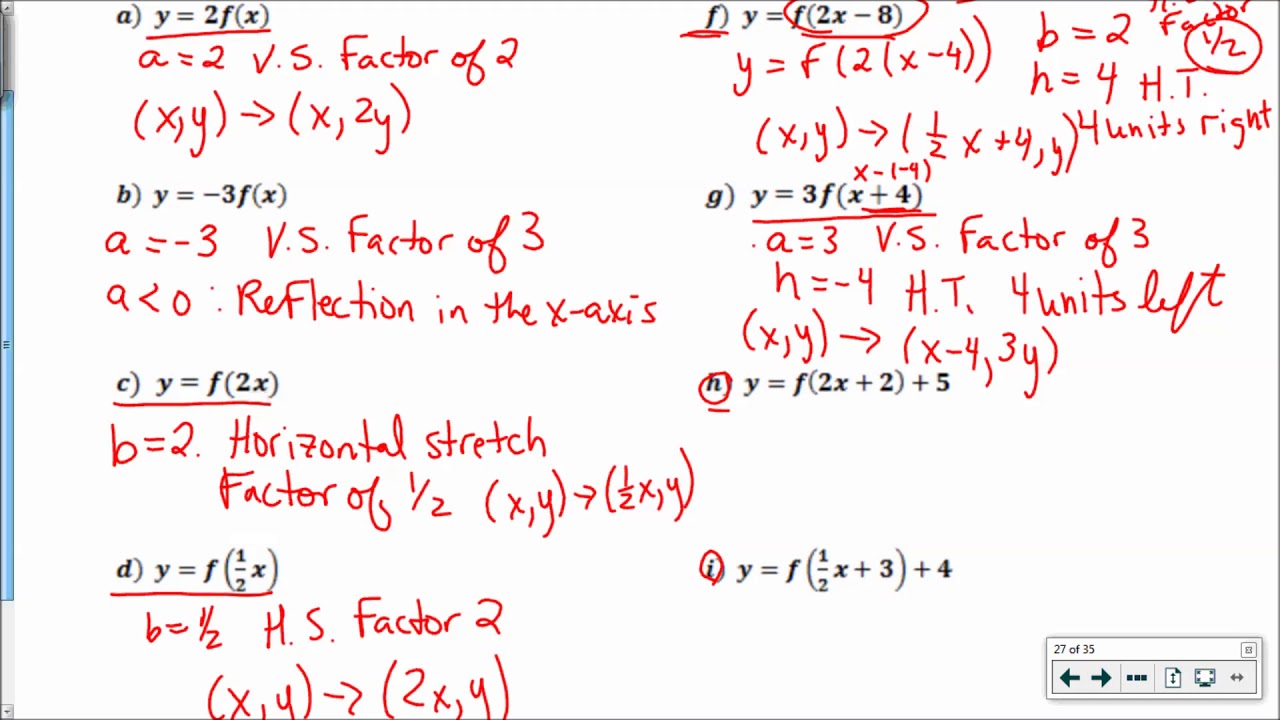 a) y = 2f(x)
a = 2 V.S. Factor of 2
(x,y) → (x, 2y)
b) y = −3f(x)
a = −3 V.S. Factor of 3
a < 0 : Reflection in the x-axis
c) y = f(2x)
b = 2. Horizontal stretch
Factor of 1/2 (x,y) → (1/2x, y)
d) y = f(1/2x)
b = 1/2 H.S. Factor 2
(x,y) → (2x, y)
f) y = f(2x − 8)
Factor
b = 2 1/2
y = f(2(x−4))
h = 4 H.T.
4 units right
(x,y) → (1/2x + 4, y)
x−(−4)
g) y = 3f(x + 4)
a = 3 V.S. Factor of 3
h = −4 H.T. 4 units left
(x,y) → (x−4, 3y)
h) y = f(2x + 2) + 5
i) y = f(1/2x + 3) + 4
27 of 35